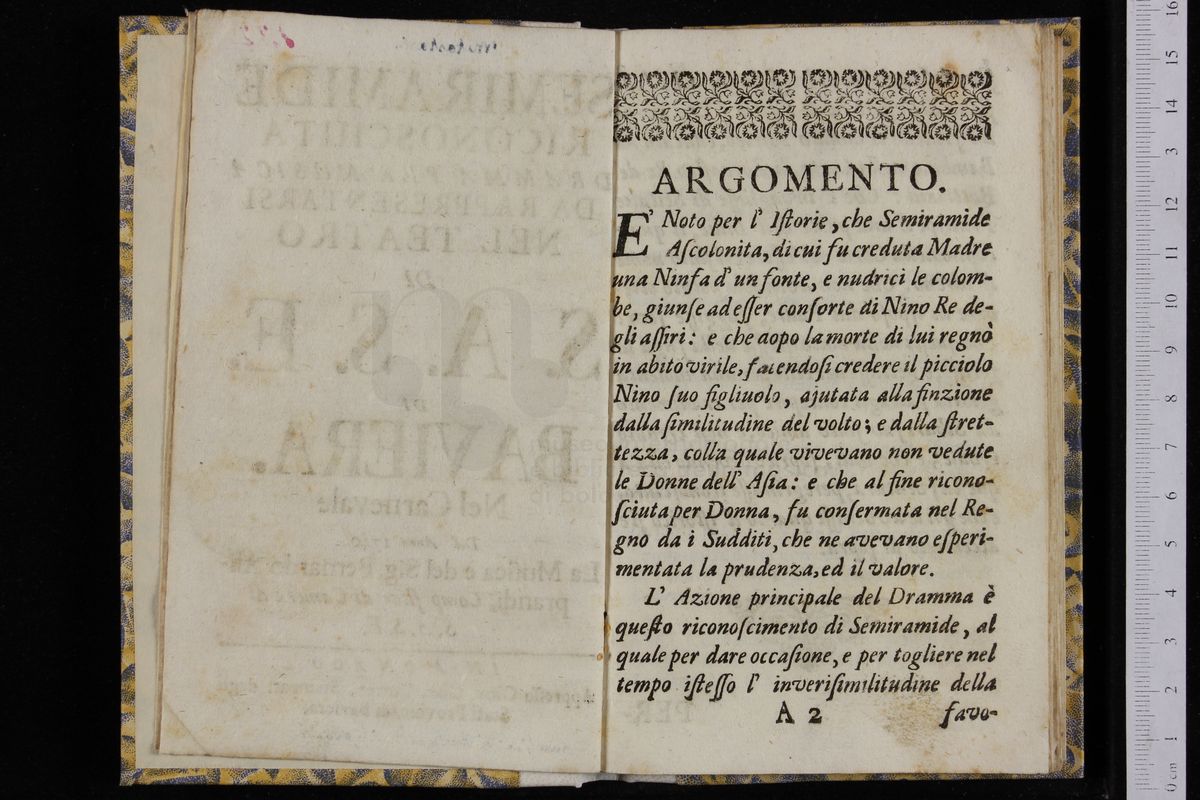 ARGOMENTO.
E' Noto per l' Iſtorie, che Semiramide
Aſcolonita, di cui fu creduta Madre
una Ninfa d' un fonte, e nudrici le colom-
be, giunſe ad eſſer conſorte di Nino Re de-
gli aſſiri: e che aopo la morte di lui regnò
in abito virile, facendoſi credere il picciolo
Nino ſuo figliuolo, ajutata alla finzione
dalla ſimilitudine del volto; e dalla ſtret-
tezza, colla quale vivevano non vedute
le Donne dell' Aſia: e che al fine ricono-
ſciuta per Donna, fu conſermata nel Re-
gno da i Sudditi, che ne avevano eſperi-
mentata la prudenza, ed il valore.
L' Azione principale del Dramma è
queſto riconoſcimento di Semiramide, al
quale per dare occaſione, e per togliere nel
tempo iſteſſo l' inveriſimilitudine della
A 2 favo-
SEMIRAMIDE
RICONOSCIUTA
DRAMMA PER MUSICA
DA RAPPRESENTARSI
NEL TEATRO
DI
S. A. S. E.
DI
BAVIERA.
Nel Carnevale
La Muſica e del Sig. Bernardo
0 cm 1 2 3 4 5 6 7 8 9 10 11 12 3 14 15 16